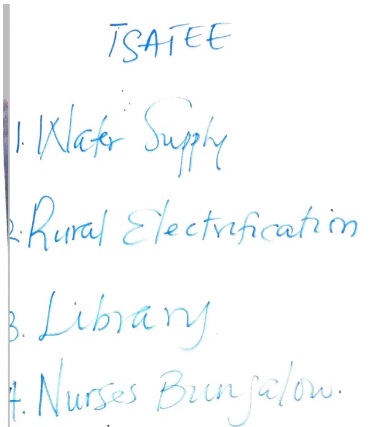 TSATEE
1. Water Supply
2. Rural Electrification
3. Library
4. Nurses Bungalow.